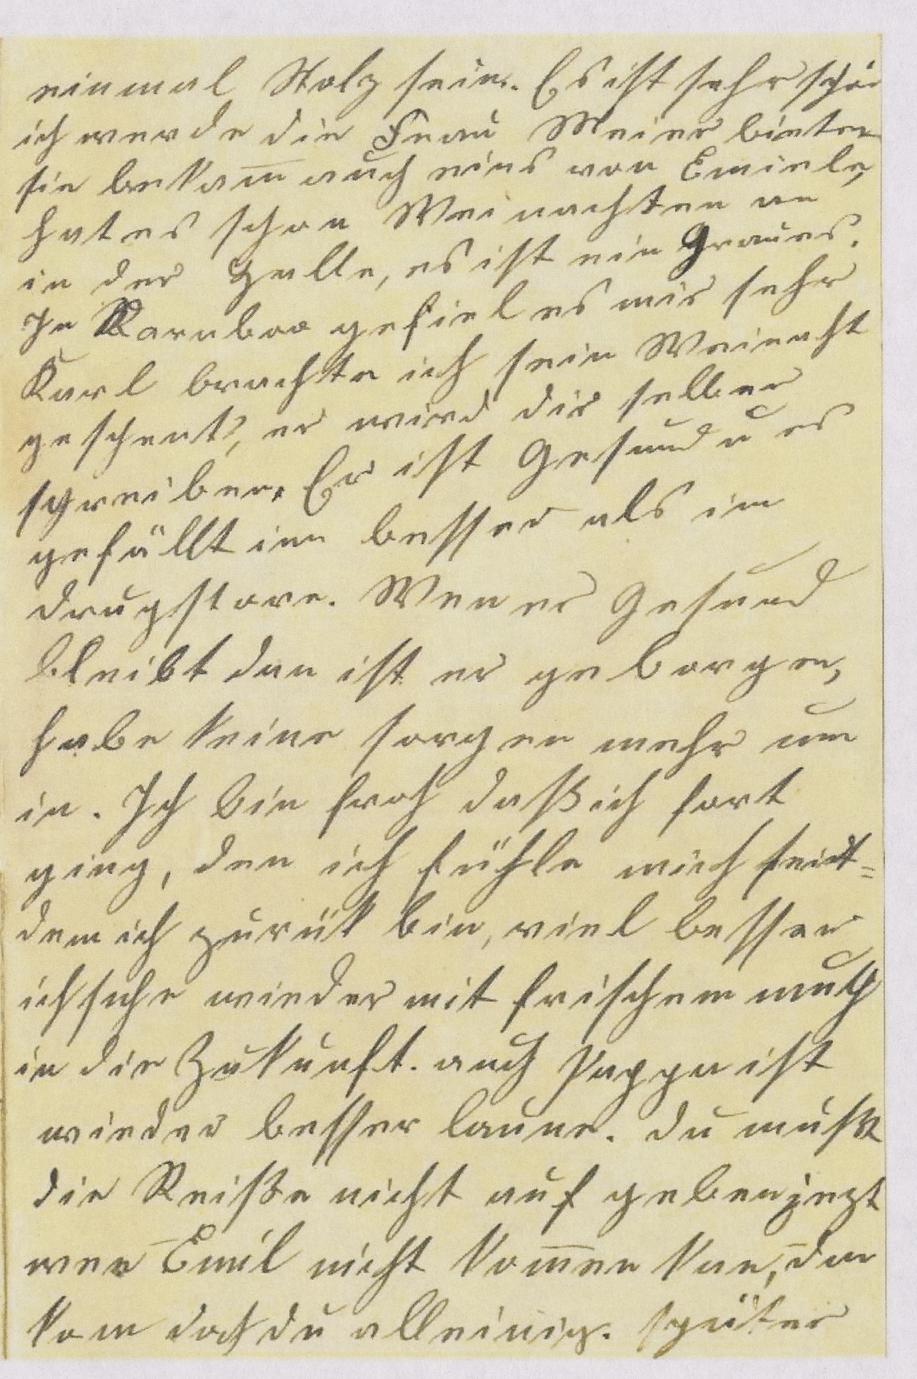 einmal Stolz sein. Es ist sehr schön
ich werde die Frau Meier bieten
sie bekam̄ auch eins von Emiele,
hat es schon Weinachten an
in der Halle, es ist ein Graues.
In gefiel es mir sehr
Karl brachte ich sein Weinacht
geschenk, er wird dir selber
schreiben. Er ist Gesund u es
gefällt im besser als im
drugstore. Wen er Gesund
bleibt dan ist er geborgen,
habe keine sorgen mehr um
in. Ich bin froh daß ich fort
ging, den ich fühle mich seit=
dem ich zurük bin, viel besser
ich sehe wieder mit frischem muth
in die Zukunft. auch Pappa ist
wieder besser laune. du mußt
die Reiße nicht auf geben jezt
wen Emil nicht kom̄en kan, dan
kom doch du alleinig. später